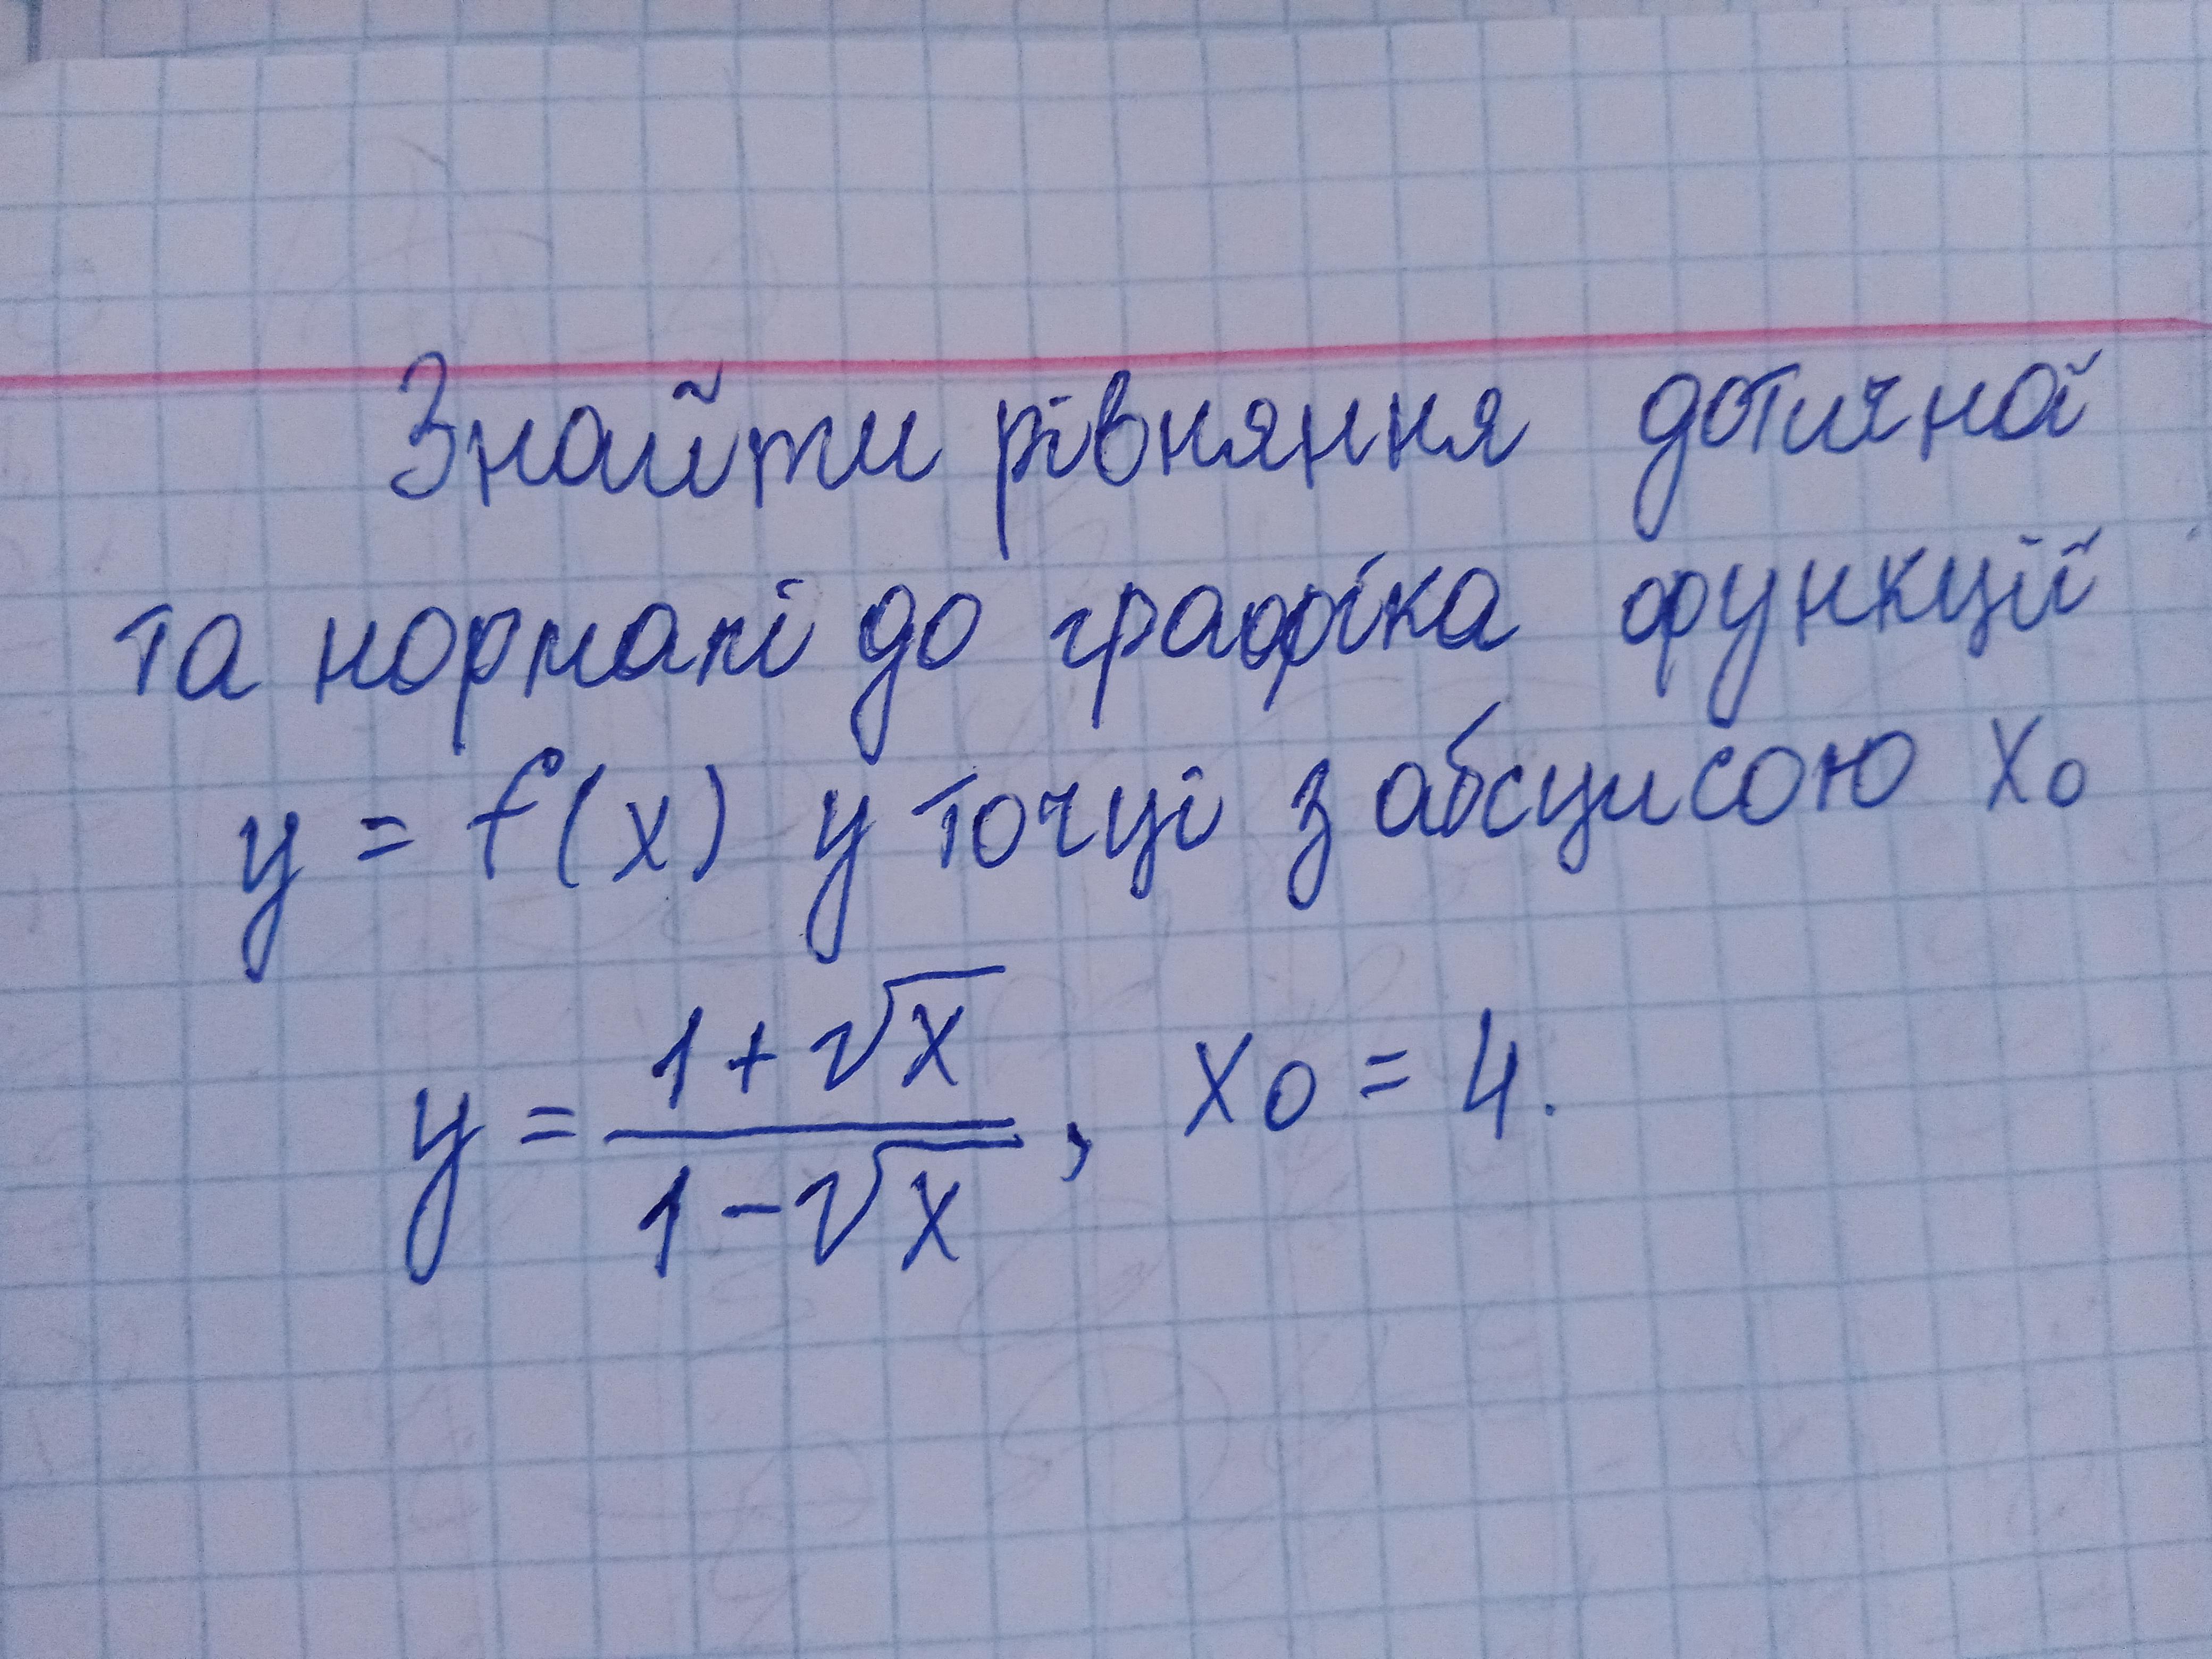 Знайти рівняння дотичної
та нормалі до графіка функції
y = f(x) у точці з абсцисою x₀
y = (1+√x)/(1-√x), x₀ = 4.